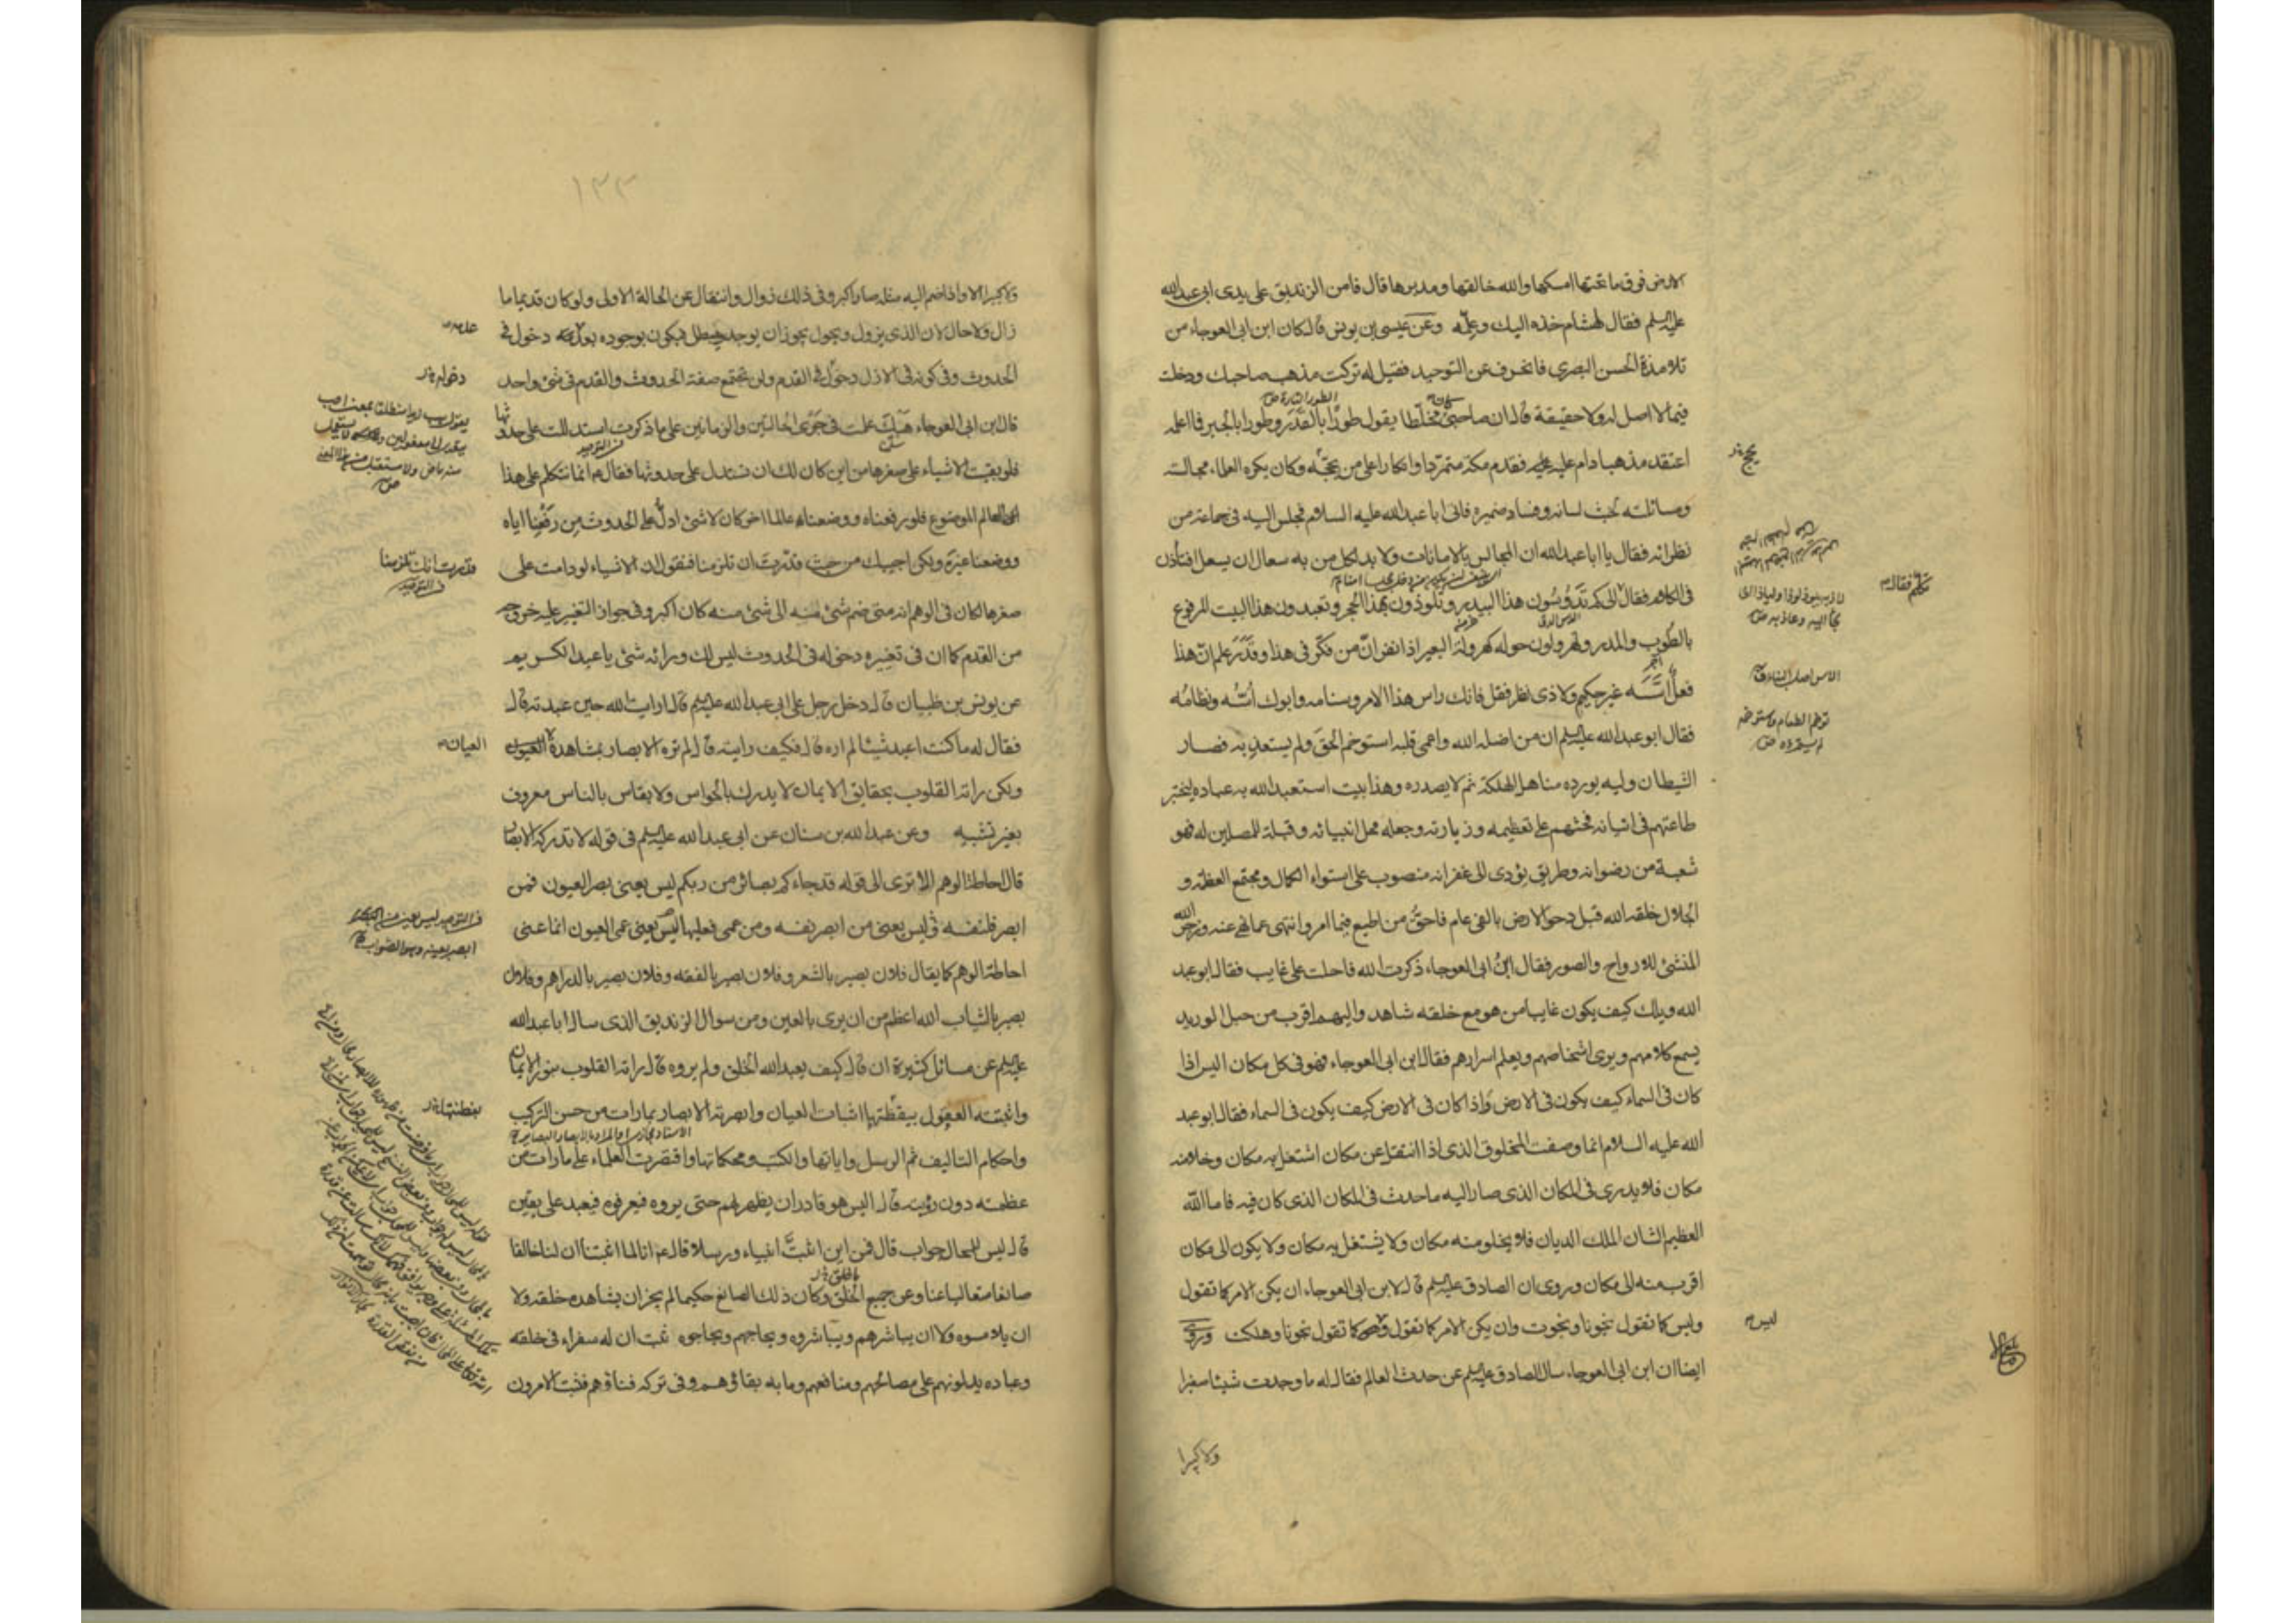 الارض فوق ما تحتها امسكها والله خالقها ومدبرها قال فامن الزنديق على يدى ابى عبدالله
عليه السلم فقال لهشام خذه اليك وعلّمه وعن عيسى بن يونس قال كان ابن ابى العوجاء من
تلامذة الحسن البصرى فانحرف عن التوحيد فقيل له تركت مذهب صاحبك ودخلت
فيما لا اصل له ولا حقيقة قال ان صاحبى كان مخلّطا يقول طورا بالقدر وطورا بالجبر فما اعلمه
اعتقد مذهبا دام عليه فقدم مكة متمردا وانكارا على من يحجّه وكان يكره العلماء مجالسته
ومسائلته لخبث لسانه وفساد ضميره فاتى ابا عبدالله عليه السلام فجلس اليه فى جماعة من
نظرائه فقال يا ابا عبدالله ان المجالس بالامانات ولا بد لكل من به سعال ان يسعل افتأذن
فى الكلام فقال الى كم تدوسون هذا البيدر وتلوذون بهذا الحجر وتعبدون هذا البيت المرفوع
بالطوب والمدر وتهرولون حوله كهرولة البعير اذا نفر انّ من فكّر فى هذا وقدّر علم انّ هذا
فعل اسّسه غير حكيم ولا ذى نظر فقل فانك راس هذا الامر وسنامه وابوك اسّه ونظامه
فقال ابو عبدالله عليه السلم ان من اضله الله واعمى قلبه استوخم الحق ولم يستعذبه فصار
الشيطان وليه يورده مناهل الهلكة ثم لا يصدره وهذا بيت استعبد الله به عباده ليختبر
طاعتهم فى اتيانه فحثهم على تعظيمه وزيارته وجعله محل انبيائه وقبلة للمصلين له فهو
شعبة من رضوانه وطريق يؤدى الى غفرانه منصوب على استواء الكمال ومجتمع العظمة و
الجلال خلقه الله قبل دحو الارض بالفى عام فاحقّ من اطيع فيما امر وانتهى عما نهى عنه وزجر الله
المنشئ للارواح والصور فقال ابن ابى العوجاء ذكرت الله فاحلت على غايب فقال ابو عبد
الله ويلك كيف يكون غايبا من هو مع خلقه شاهد واليهم اقرب من حبل الوريد
يسمع كلامهم ويرى اشخاصهم ويعلم اسرارهم فقال ابن ابى العوجاء فهو فى كل مكان اليس اذا
كان فى السماء كيف يكون فى الارض واذا كان فى الارض كيف يكون فى السماء فقال ابو عبد
الله عليه السلام انما وصفت المخلوق الذى اذا انتقل عن مكان اشتغل به مكان وخلا منه
مكان فلا يدرى فى المكان الذى صار اليه ما حدث فى المكان الذى كان فيه فاما الله
العظيم الشان الملك الديان فلا يخلو منه مكان ولا يشتغل به مكان ولا يكون الى مكان
اقرب منه الى مكان وروى ان الصادق عليه السلم قال لابن ابى العوجاء ان يكن الامر كما تقول
وليس كما تقول نجونا ونجوت وان يكن الامر كما نقول وهو كما نقول نجونا وهلكت وروى
ايضا ان ابن ابى العوجاء سال الصادق عليه السلم عن حدث العالم فقال له ما وجدت شيئا صغيرا
ولا كبيرا
نكلم فقال
الاس اصل البناء
ليس
١٣٣
ولا كبيرا الا واذا ضم اليه مثله صار اكبر وفى ذلك زوال وانتقال عن الحالة الاولى ولو كان قديما ما
زال ولا حال لان الذى يزول ويحول يجوز ان يوجد ويبطل فيكون بوجوده بعد دخول فى
الحدوث وفى كونه فى الازل دخول فى القدم ولن تجتمع صفة الحدوث والقدم فى شئ واحد
قال ابن ابى العوجاء هبك علمت فى جرى الحالتين والزمانين على ما ذكرت استدللت على حدوثها
فلو بقيت الاشياء على صغرها من اين كان لك ان تستدل على حدوثها فقال انما نتكلم على هذا
العالم الموضوع فلو رفعناه ووضعناه عالما اخر كان لا شئ ادلّ على الحدوث من رفعنا اياه
ووضعنا غيره ولكن اجيبك من حيث قدّرت ان تلزمنا فنقول ان الاشياء لو دامت على
صغرها لكان فى الوهم انه متى ضم شئ منه الى شئ منه كان اكبر وفى جواز التغير عليه خروجه
من القدم كما ان فى تغييره دخوله فى الحدوث ليس لك وراءه شئ يا عبد الكريم
عن يونس بن ظبيان قال دخل رجل على ابى عبدالله عليه السلم قال ارايت الله حين عبدته قال
فقال له ما كنت اعبد شيئا لم اره قال فكيف رايته قال لم تره الابصار بمشاهدة العيون
ولكن راته القلوب بحقايق الايمان لا يدرك بالحواس ولا يقاس بالناس معروف
بغير تشبيه وعن عبدالله بن سنان عن ابى عبدالله عليه السلم فى قوله لا تدركه الابصار
قال احاطة الوهم الا ترى الى قوله قد جاءكم بصائر من ربكم ليس يعنى بصر العيون فمن
ابصر فلنفسه ليس يعنى من ابصر نفسه ومن عمى فعليها ليس يعنى عمى العيون انما عنى
احاطة الوهم كما يقال فلان بصير بالشعر وفلان بصير بالفقه وفلان بصير بالدراهم وفلان
بصير بالثياب الله اعظم من ان يرى بالعين ومن سوال الزنديق الذى سال ابا عبدالله
عليه السلم عن مسائل كثيرة ان قال كيف يعبد الله الخلق ولم يروه قال راته القلوب بنور الايمان
واثبتته العقول بيقظتها اثبات العيان وابصرته الابصار بما راته من حسن التركيب
واحكام التاليف ثم الرسل واياتها والكتب ومحكماتها واقتصرت العلماء على ما رات من
عظمته دون رؤيته قال اليس هو قادر ان يظهر لهم حتى يروه فيعرفوه فيعبد على يقين
قال ليس للمحال جواب قال فمن اين اثبت انبياء ورسلا قال انا لما اثبتنا ان لنا خالقا
صانعا متعاليا عنا وعن جميع الخلق وكان ذلك الصانع حكيما لم يجز ان يشاهده خلقه ولا
ان يلامسوه ولا ان يباشرهم ويباشروه ويحاجهم ويحاجوه ثبت ان له سفراء فى خلقه
وعباده يدلونهم على مصالحهم ومنافعهم وما به بقاؤهم وفى تركه فناؤهم فثبت الامرون
قدرت ان تلزمنا
العيان